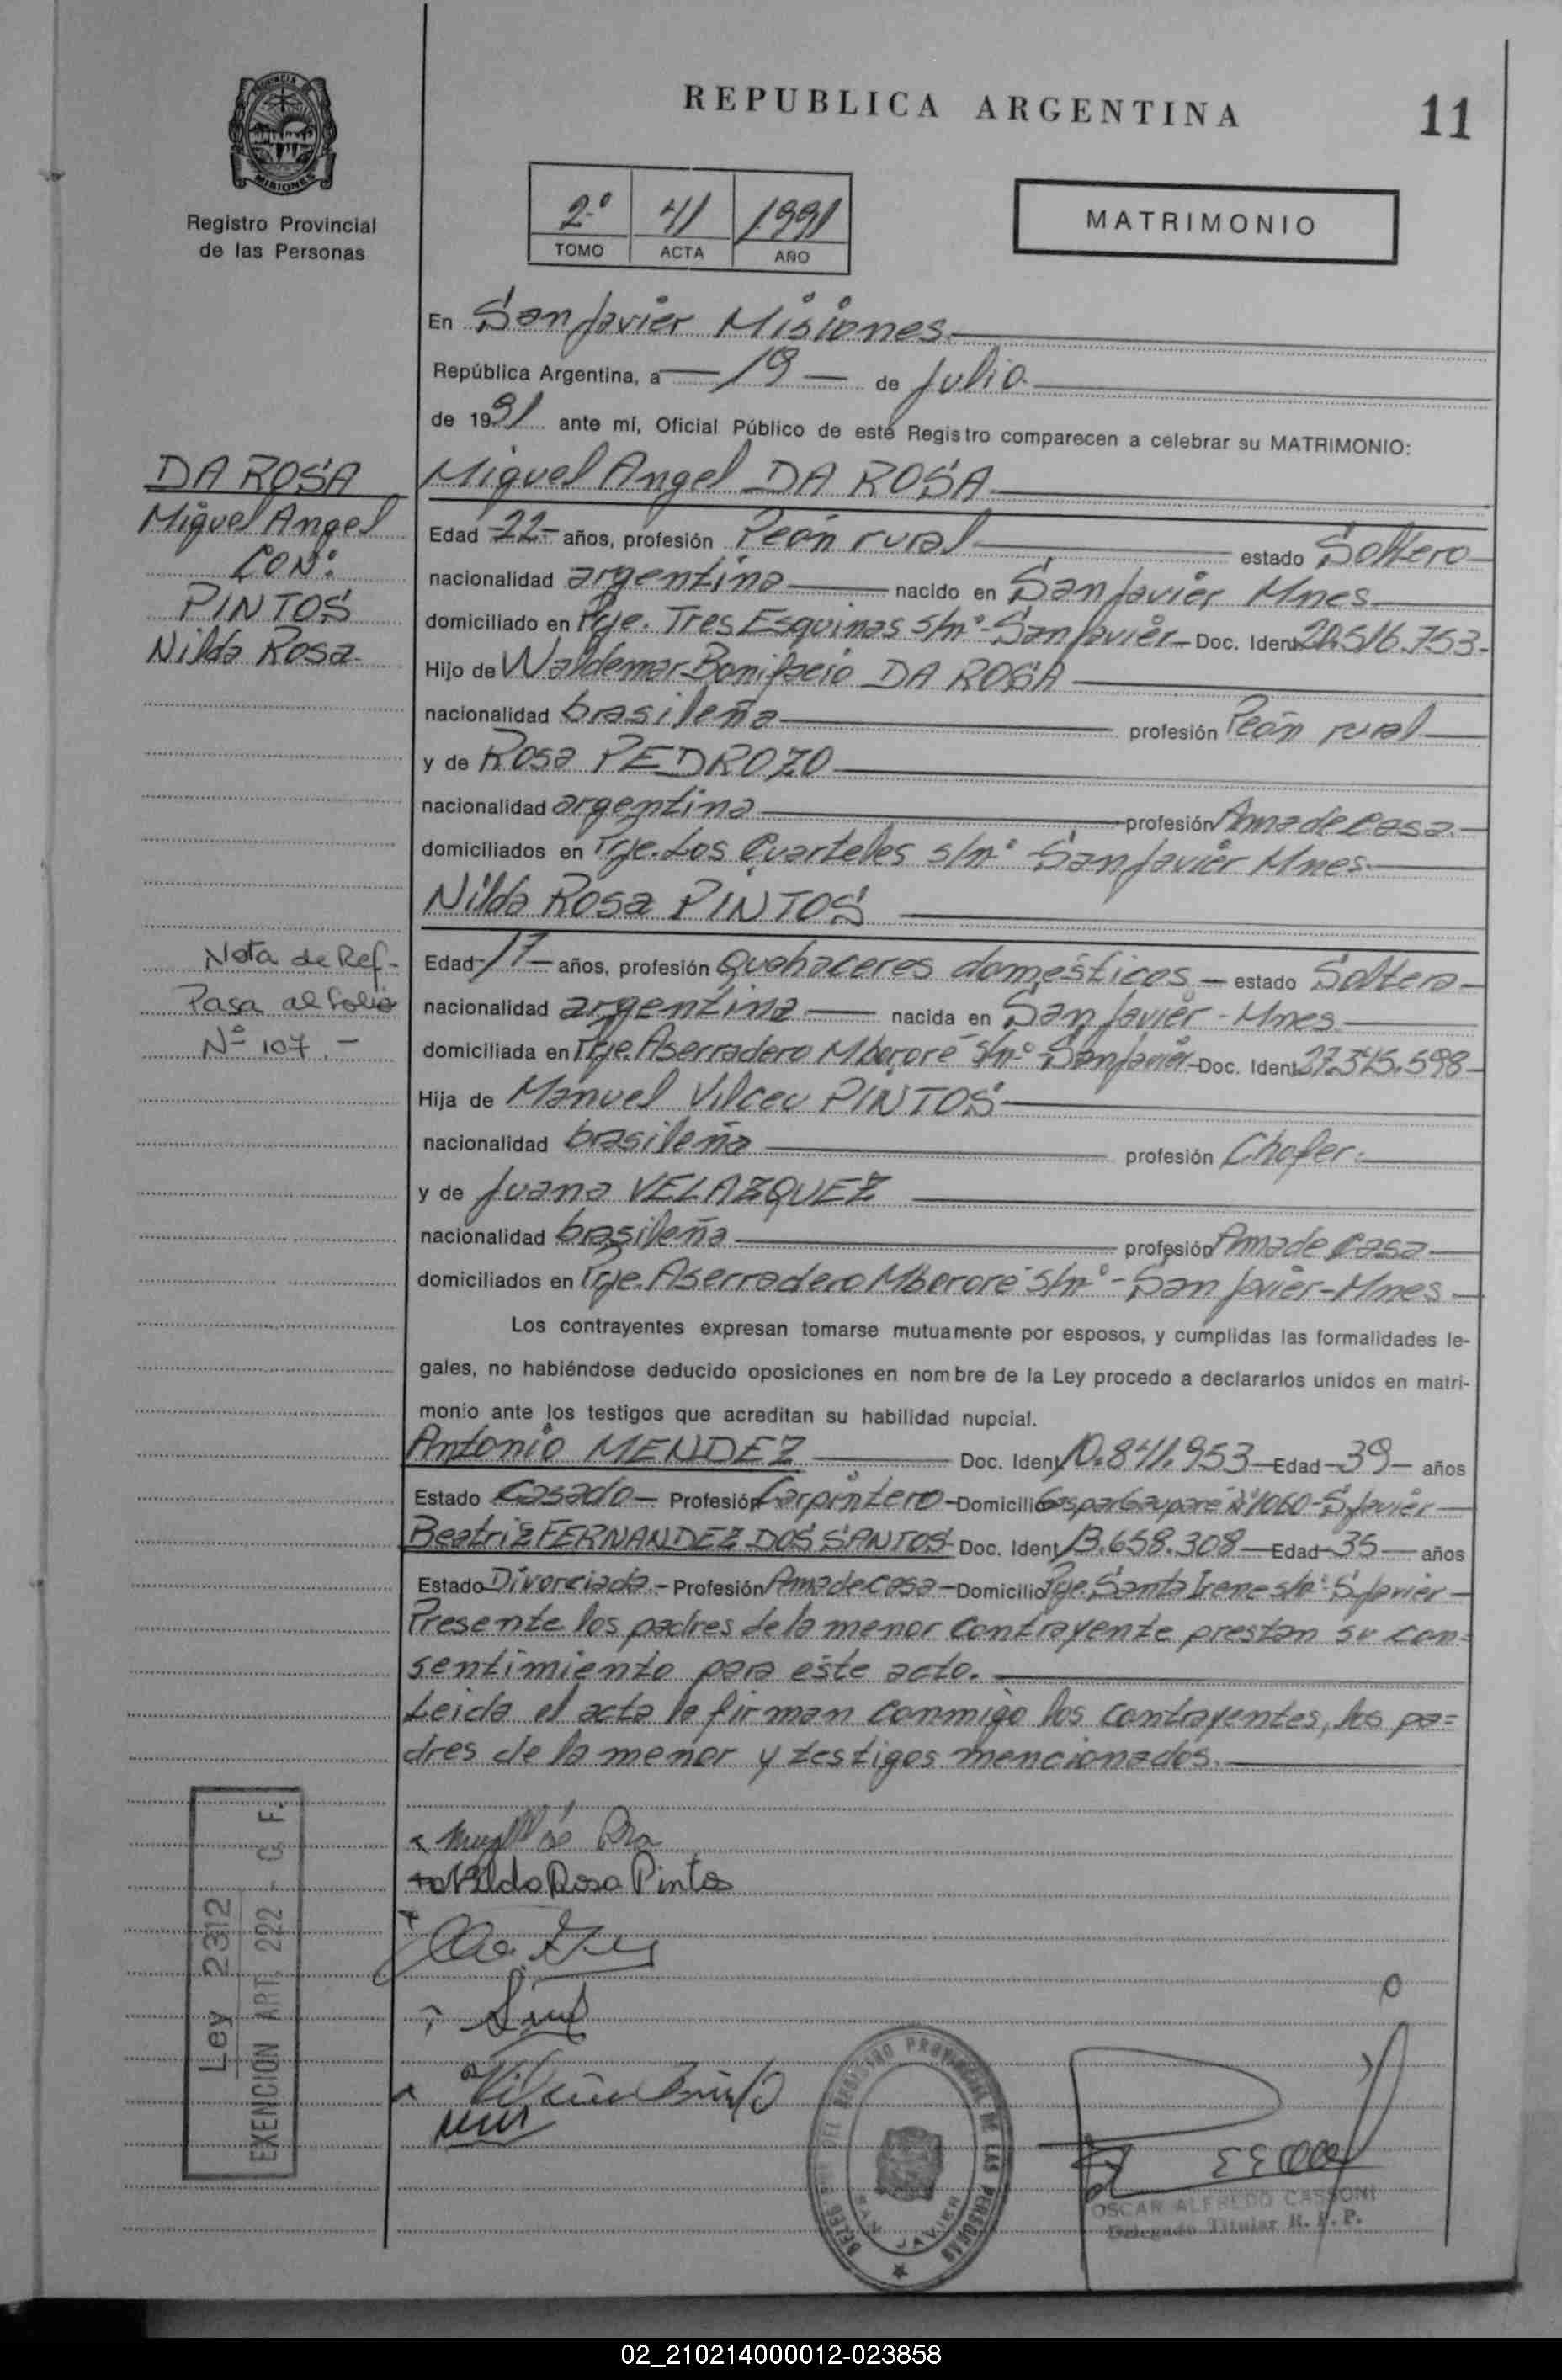 REPUBLICA ARGENTINA
11
PROVINCIA DE
MISIONES
Registro Provincial
de las Personas
2º 41 1991
TOMO ACTA AÑO
MATRIMONIO
En San Javier Misiones
República Argentina, a 19 de Julio
de 1991 ante mí, Oficial Público de este Registro comparecen a celebrar su MATRIMONIO:
DA ROSA
Miguel Angel
CON:
PINTOS
Nilda Rosa
Miguel Angel DA ROSA
Edad -22- años, profesión Peón rural estado Soltero
nacionalidad argentina nacido en San Javier Mnes
domiciliado en Pje. Tres Esquinas s/nº - San Javier - Doc. Ident 20.516.753-
Hijo de Waldemar Bonifacio DA ROSA
nacionalidad brasileña profesión Peón rural
y de Rosa PEDROZO
nacionalidad argentina profesión Ama de casa
domiciliados en Pje. Los Cuarteles s/nº San Javier Mnes
Nilda Rosa PINTOS
Nota de Ref-
Pasa al folio
Nº 107.-
Edad -17- años, profesión Quehaceres domésticos - estado Soltera
nacionalidad argentina nacida en San Javier - Mnes
domiciliada en Pje. Aserradero Mbororé s/nº San Javier - Doc. Ident 27.315.598
Hija de Manuel Vilceu PINTOS
nacionalidad brasileña profesión Chofer.
y de Juana VELAZQUEZ
nacionalidad brasileña profesión Ama de casa
domiciliados en Pje. Aserradero Mbororé s/nº - San Javier - Mnes
Los contrayentes expresan tomarse mutuamente por esposos, y cumplidas las formalidades le-
gales, no habiéndose deducido oposiciones en nombre de la Ley procedo a declararlos unidos en matri-
monio ante los testigos que acreditan su habilidad nupcial.
Antonio MENDEZ Doc. Ident 10.841.953 Edad -39- años
Estado Casado Profesión Carpintero - Domicilio Gaspar Nº 1060 - S. Javier
Beatriz FERNANDEZ DOS SANTOS Doc. Ident 13.658.308 Edad -35- años
Estado Divorciada - Profesión Ama de casa - Domicilio Pje. Santa Irene s/nº S. Javier
Presente los padres de la menor contrayente prestan su con=
sentimiento para este acto.
Leida el acta la firman conmigo los contrayentes, los pa=
dres de la menor y testigos mencionados.
Nilda Rosa Pintos
Ley 2312
EXENCION ART. 222 - C. F.
DELEGACION DEL REGISTRO PROVINCIAL DE LAS PERSONAS
SAN JAVIER
OSCAR ALFREDO CASSONI
Delegado Titular R. P. P.
02_210214000012-023858